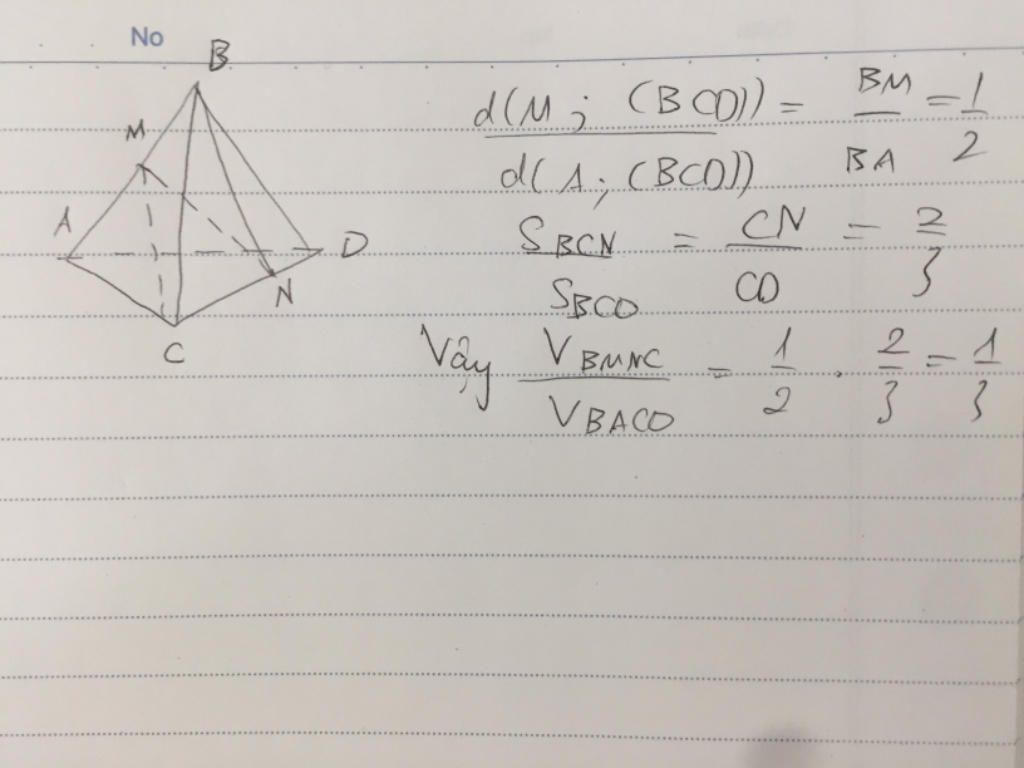 No
B
M
A
D
N
C
d(M; (BCD)) / d(A; (BCD)) = BM / BA = 1 / 2
S_BCN / S_BCD = CN / CD = 2 / 3
Vậy V_BMNC / V_BACD = 1 / 2 . 2 / 3 = 1 / 3